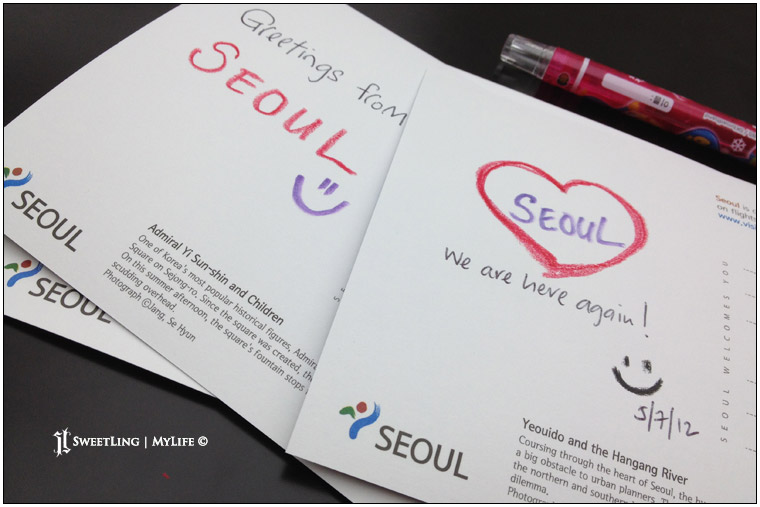 Greetings from
SEOUL
SEOUL
Admiral Yi Sun-shin and Children
One of Korea's most popular historical figures, Admiral
Square on Sejong-ro. Since the square was created, the
On this summer afternoon, the square's fountain stops
scudding overhead.
Photograph ©Jang, Se Hyun
SEOUL
SEOUL
We are here again!
5/7/12
Seoul is
on flights
www.vis
SEOUL WELCOMES YOU
SEOUL
Yeouido and the Hangang River
Coursing through the heart of Seoul, the
a big obstacle to urban planners.
the northern and southern
dilemma.
SWEETLING | MYLIFE ©